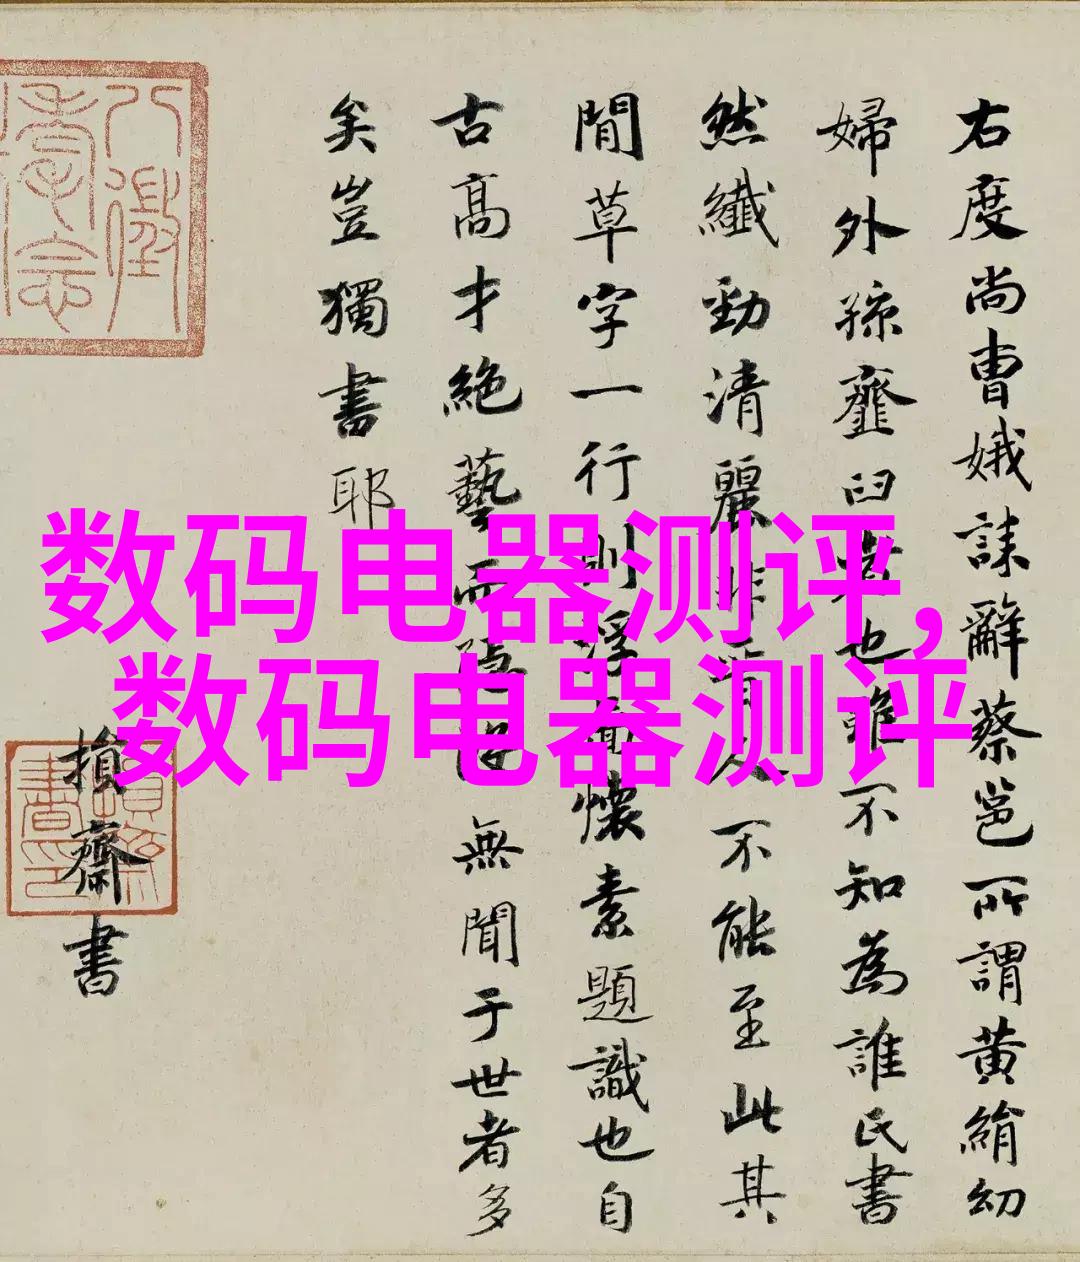 右度尚曹娥誄辭蔡邕所謂黃絹幼
婦外孫虀臼者也雖不知為誰氏書
然纖勁清麗非晉人不能至此其
閒草字一行則浮圖懷素題識也自
古高才絕藝而隱沒無聞于世者多
矣豈獨書耶
損齋書
数码电器测评,
数码电器测评